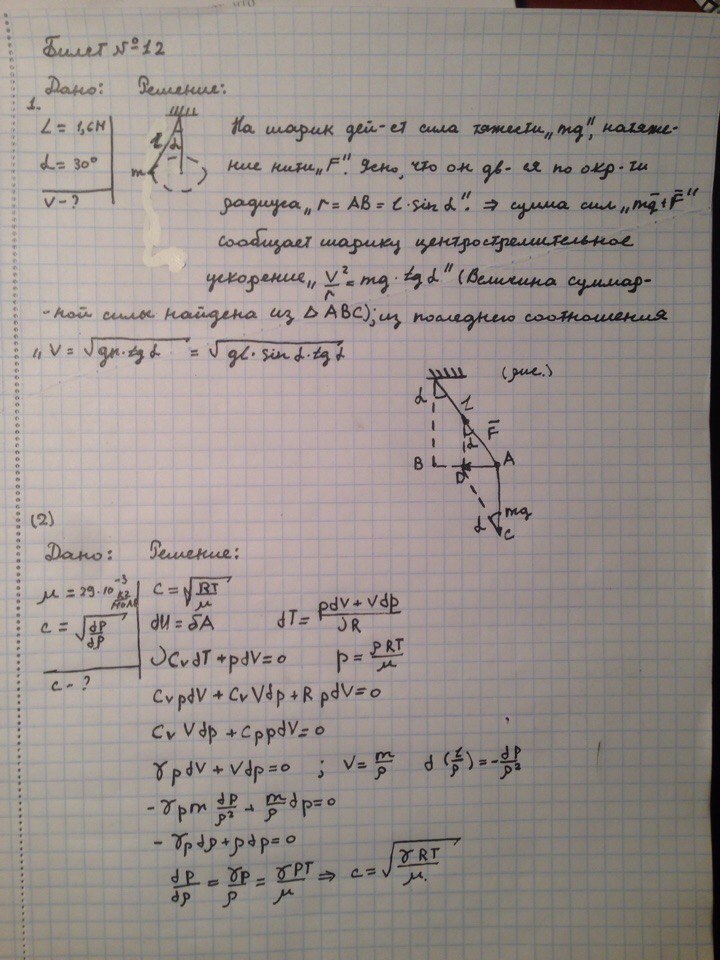 Билет №12
Дано: Решение:
1.
L = 1,6м
α = 30°
v - ?
l α
m
На шарик дей-ет сила тяжести „mg", натяже-
ние нити „F". Ясно, что он дв-ся по окр-ти
радиуса „r = AB = l·sin α". ⇒ сумма сил „mg̅+F̅"
сообщает шарику центростремительное
ускорение „v²/r = mg·tg α" (Величина суммар-
-ной силы найдена из △ABC); из последнего соотношения
„V = √(gr·tg α) = √(gl·sin α·tg α)
(рис.)
α l
F̅
α
B D A
α mg
C
(2)
Дано: Решение:
μ = 29·10⁻³ кг/моль
c = √(dp/dρ)
c - ?
c = √(RT/μ)
dU = δA dT = (pdV + Vdp)/νR
νCᵥdT + pdV = 0 p = ρRT/μ
CᵥpdV + CᵥVdp + RpdV = 0
CᵥVdp + CₚpdV = 0
γpdV + Vdp = 0 ; V = m/ρ d(1/ρ) = -dρ/ρ²
-γpm dρ/ρ² + m/ρ dp = 0
-γpdρ + ρdp = 0
dp/dρ = γp/ρ = γPT/μ ⇒ c = √(γRT/μ).